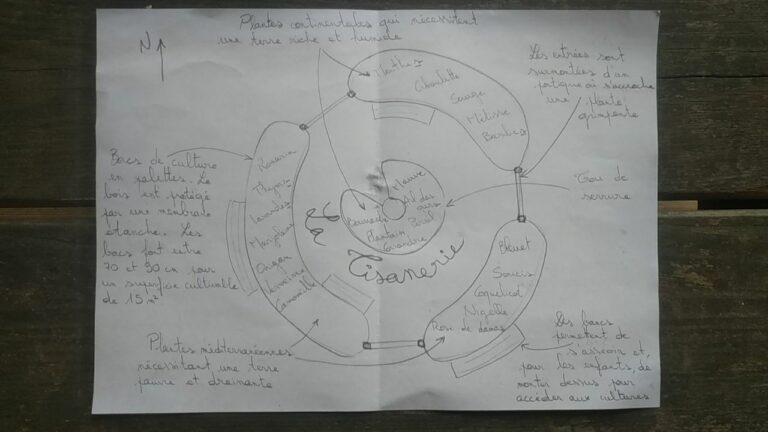 Plantes continentales qui nécessitent
une terre riche et humide
N
Menthes
Ciboulette
Sauge
Mélisse
Les entrées sont
surmontées d'un
portique où s'accroche
une plante
grimpante
Bacs de culture
en palettes. Le
bois est protégé
par une membrane
étanche. Les
bacs font entre
70 et 90 cm pour
un superficie cultivable
de 15 m²
Romarin
Thyms
Lavandes
Marjolaine
Origan
Verveine
Camomille
Mauve
Ail des
ours
Persil
Bourrache
Plantain
Coriandre
Trou de
serrure
Tisanerie
Bleuet
Soucis
Coquelicot
Nigelle
Rose de damas
Plantes méditerranéennes
nécessitant une terre
pauvre et drainante
Les bancs
permettent de
s'asseoir et,
pour les enfants, de
monter dessus pour
accéder aux cultures